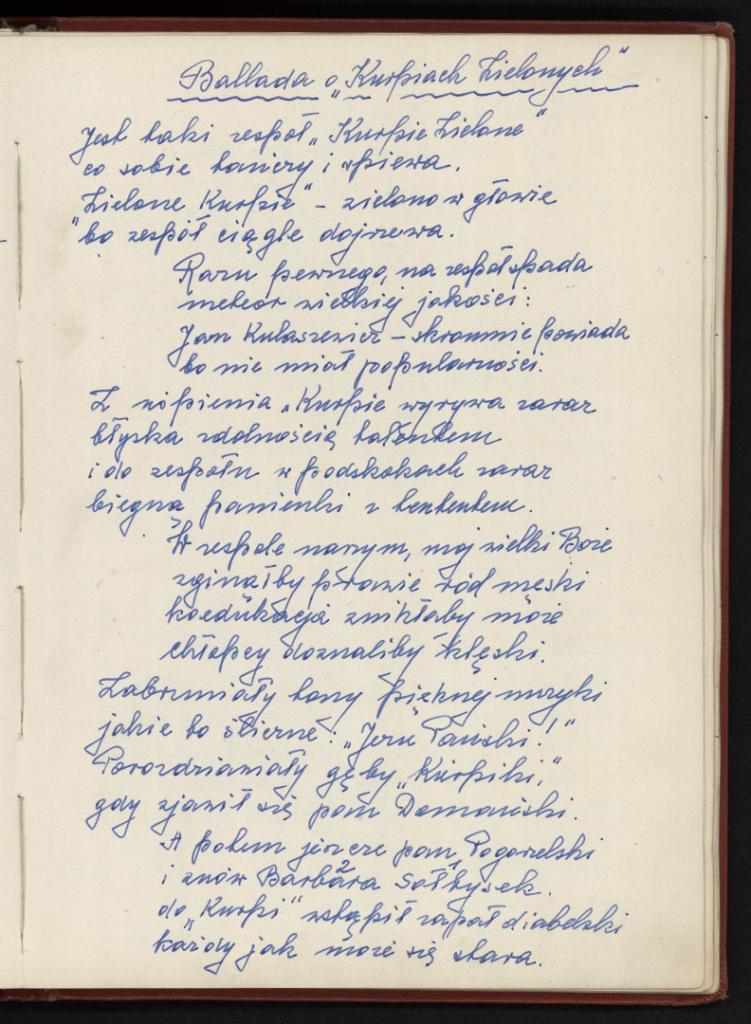 Ballada o „Kurpiach Zielonych"
Jest taki zespół „Kurpie Zielone"
co sobie tańczy i śpiewa.
„Zielone Kurpie" – zielono w głowie
bo zespół ciągle dojrzewa.
Razu pewnego, na zespół spada
meteor wielkiej jakości:
Jan Kulaszewicz – skromnie powiada
bo nie miał popularności.
Z uśpienia „Kurpie wyrywa zaraz
błyska zdolnością talentem
i do zespołu w podskokach zaraz
biegną panienki z tententem.
W zespole naszym, mój wielki Boże
zginąłby prawie ród męski
koedukacja znikłaby może
chłopcy doznaliby klęski.
Zabrzmiały tony pięknej muzyki
jakie to śliczne: „Jezu Pański!"
Porozdziawiały gęby „Kurpiki,"
gdy zjawił się pan Domański.
A potem jeszcze pan Pogorzelski
i znów Barbara Sołtysek.
do „Kurpi" wstąpił zapał diabelski
każdy jak może się stara.